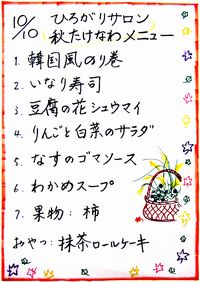 10/10 ひろがりサロン
秋たけなわメニュー
1. 韓国風のり巻
2. いなり寿司
3. 豆腐の花シュウマイ
4. りんごと白菜のサラダ
5. なすのゴマソース
6. わかめスープ
7. 果物: 柿
おやつ: 抹茶ロールケーキ